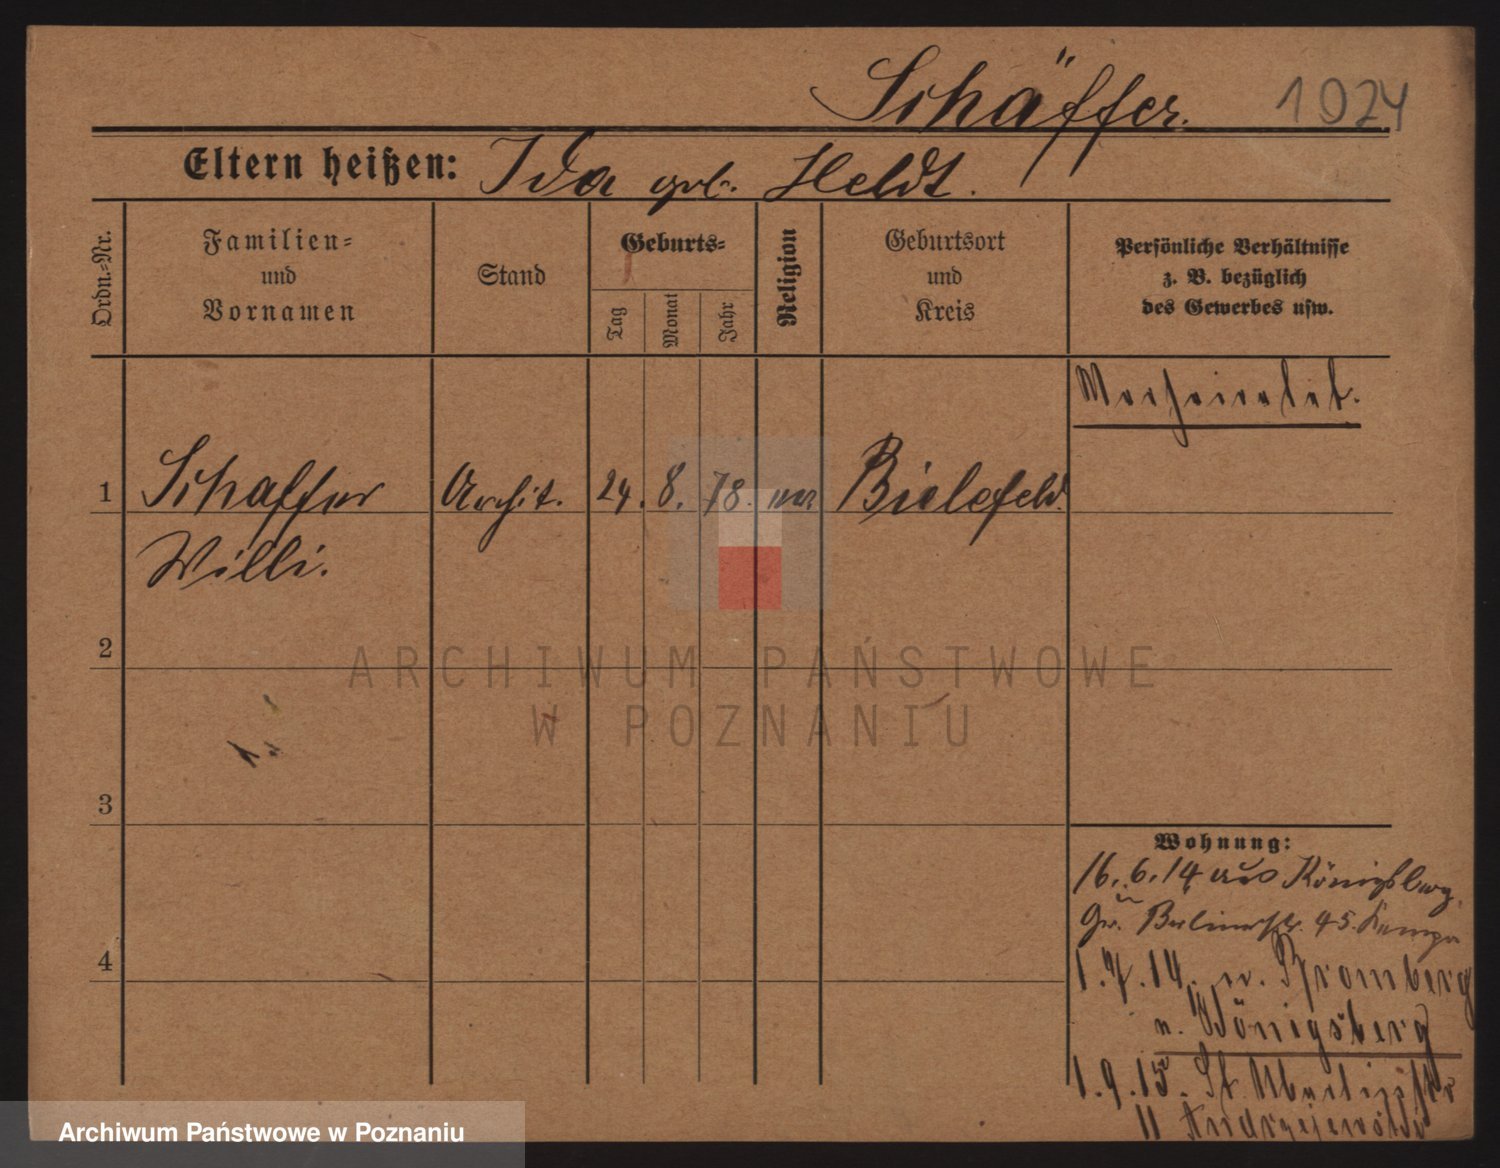 Schäffer. 1924
Eltern heißen: Ida geb. Heldt.
Ordn.-Nr.
Familien-
und
Vornamen
Stand
Geburts-
Tag
Monat
Jahr
Religion
Geburtsort
und
Kreis
Persönliche Verhältnisse
z. B. bezüglich
des Gewerbes usw.
1
Schäffer
Willi.
Archit.
24. 8. 78.
Bielefeld.
2
3
4
Wohnung:
16.6.14 aus Königsberg
45.
1.7.14. Bromberg
n. Königsberg
1.9.15. St. Martinstr
11 Andrzejewski
ARCHIWUM PAŃSTWOWE
W POZNANIU
Archiwum Państwowe w Poznaniu